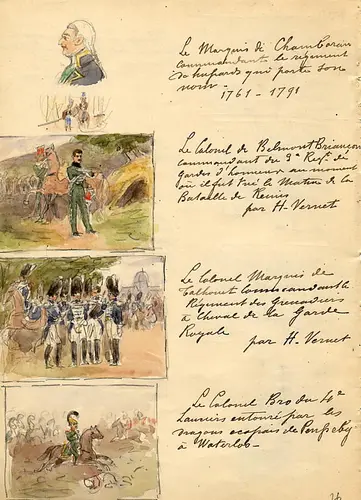 Le Marquis de Chamboran
commandant le régiment
de husards qui porte son
nom -
1761 - 1791
Le Colonel de Belmont Briançon
commandant du 3e Regt des
gardes d'honneur au moment
où il fut tué le Matin de la
Bataille de Reims
par H. Vernet
Le Colonel Marquis de
Talhouet Commandant le
Régiment des Grenadiers
à Cheval de la Garde
Royale
par H. Vernet
Le Colonel Bro du 4e
Lanciers entouré par les
dragons ecossais de
à Waterloo -